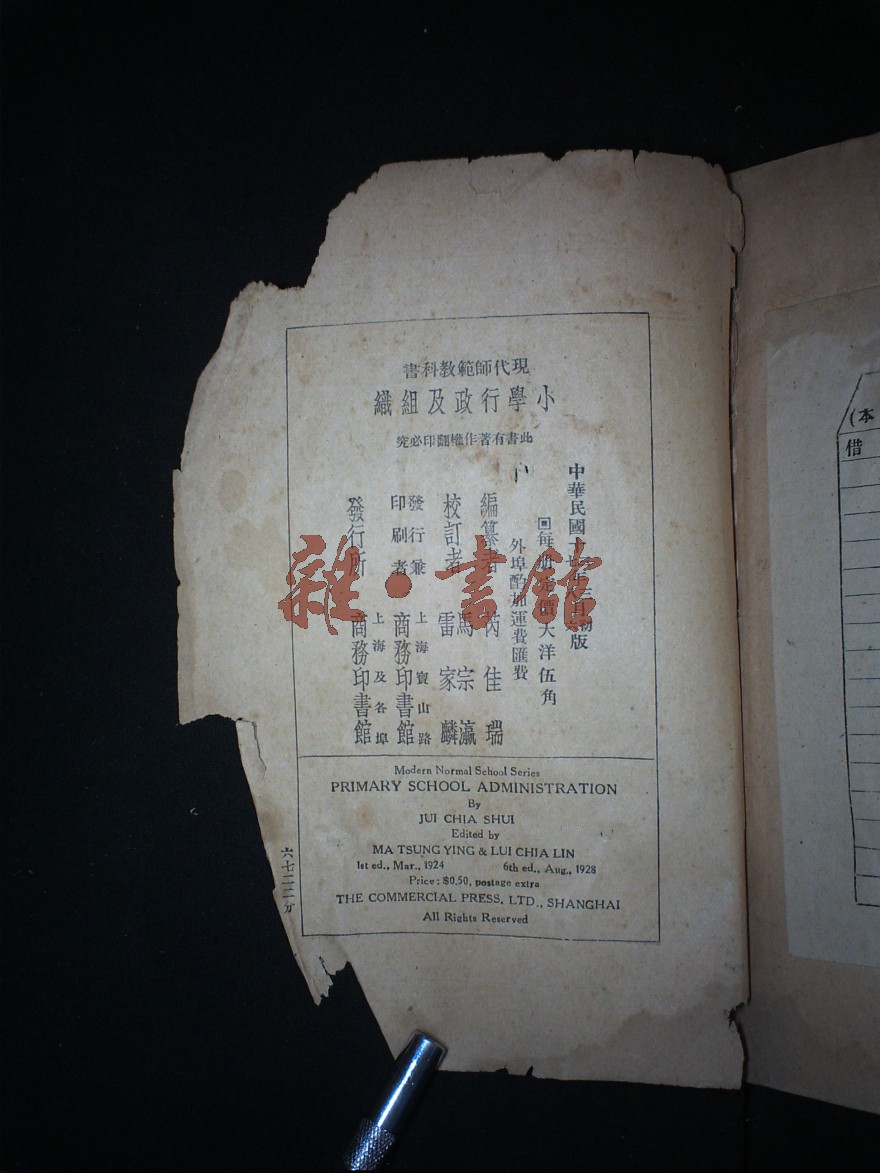 現代師範教科書
小學行政及組織
此書有著作權翻印必究
中華民國十七年 版
回每冊定價大洋伍角
外埠酌加運費匯費
編纂者 芮佳瑞
校訂者 馬宗瀛 雷家麟
發行兼印刷者 上海寶山路 商務印書館
發行所 上海及各埠 商務印書館
Modern Normal School Series
PRIMARY SCHOOL ADMINISTRATION
By
JUI CHIA SHUI
Edited by
MA TSUNG YING & LUI CHIA LIN
1st ed., Mar., 1924 6th ed., Aug., 1928
Price: $0.50, postage extra
THE COMMERCIAL PRESS, LTD., SHANGHAI
All Rights Reserved
六七二二分
(本
借
雜·書館